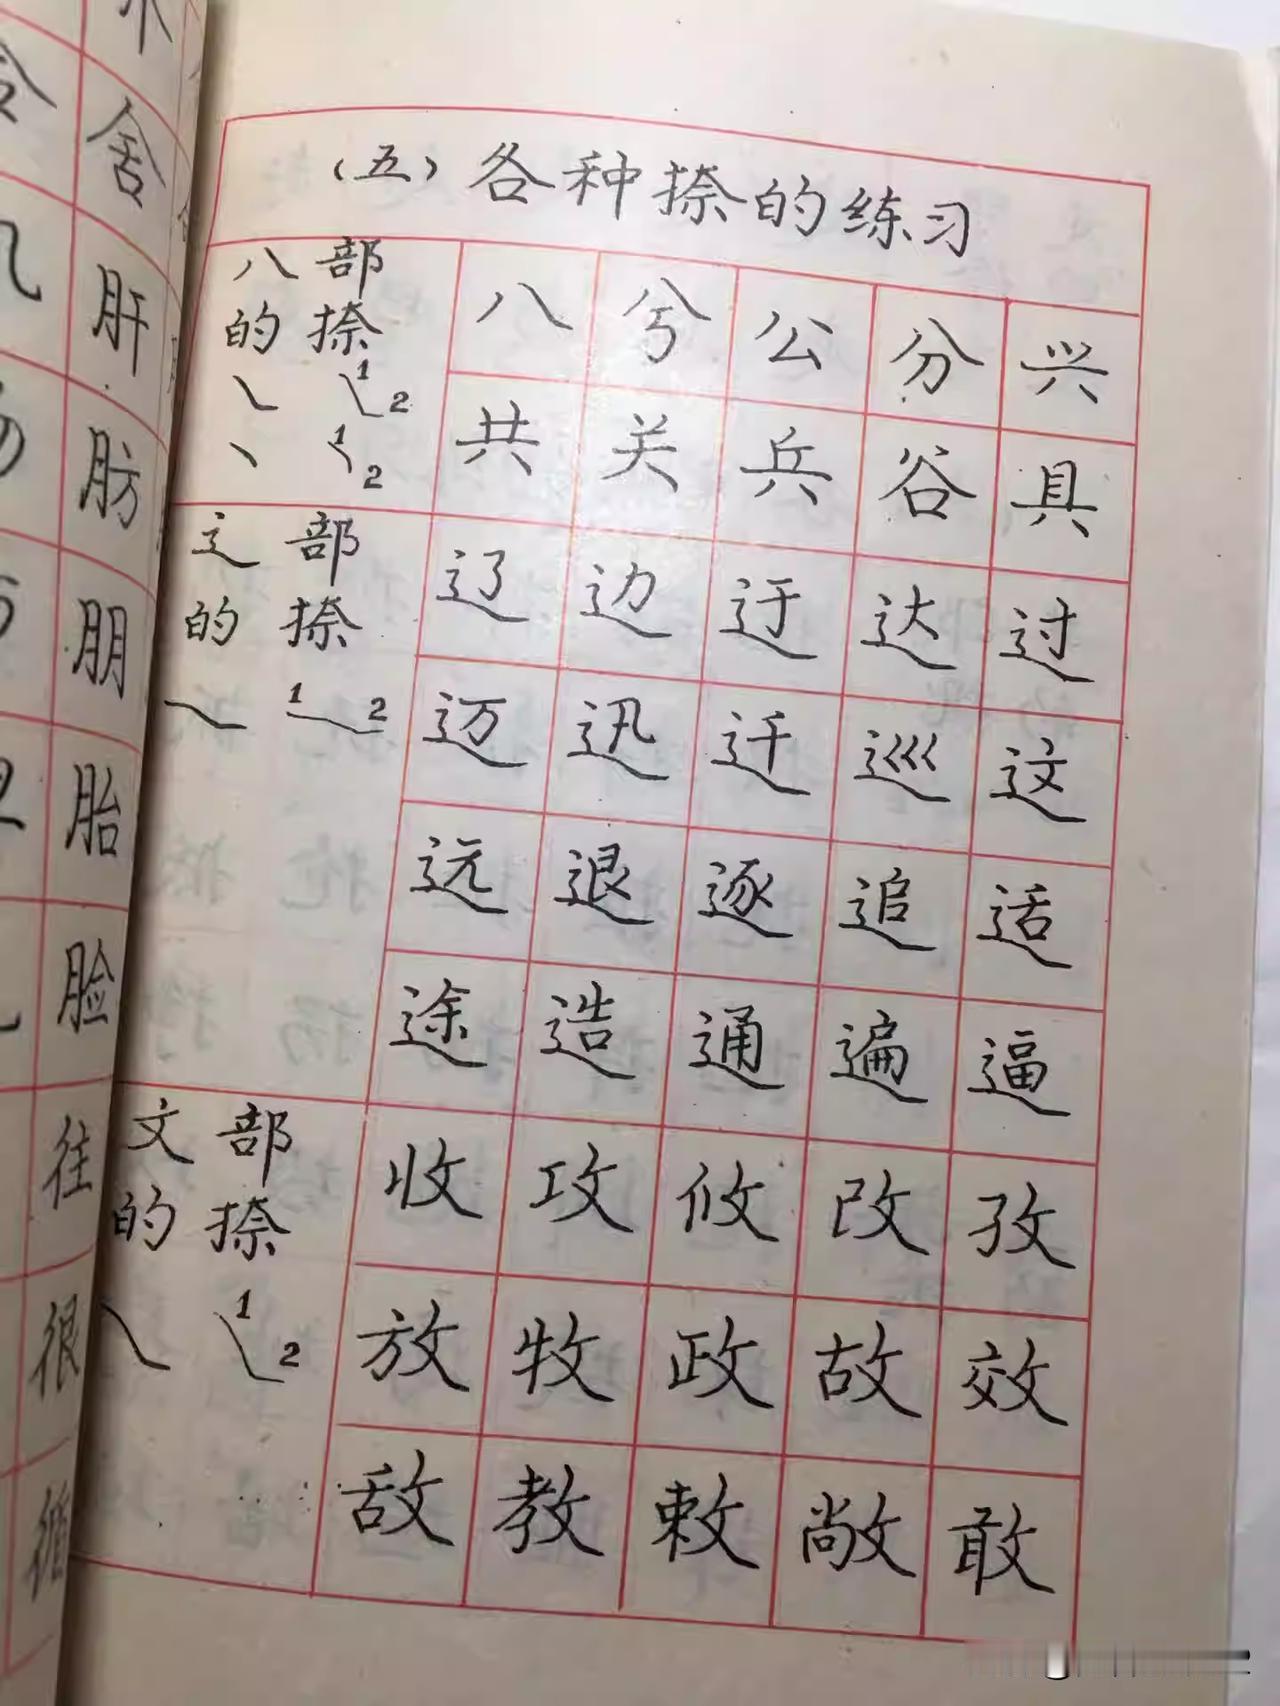 舍
肝
肪
朋
胎
脸
往
很
循
(五)各种捺的练习
八部
的捺
㇏ 1 2
丶 1 2
八 兮 公 分 兴
共 关 兵 谷 具
辶部
的捺
㇏ 1 2
辽 边 迂 达 过
迈 迅 迁 巡 这
远 退 逐 追 适
途 造 通 遍 逼
文部
的捺
㇏ 1 2
收 攻 攸 改 孜
放 牧 政 故 效
敌 教 敕 敞 敢